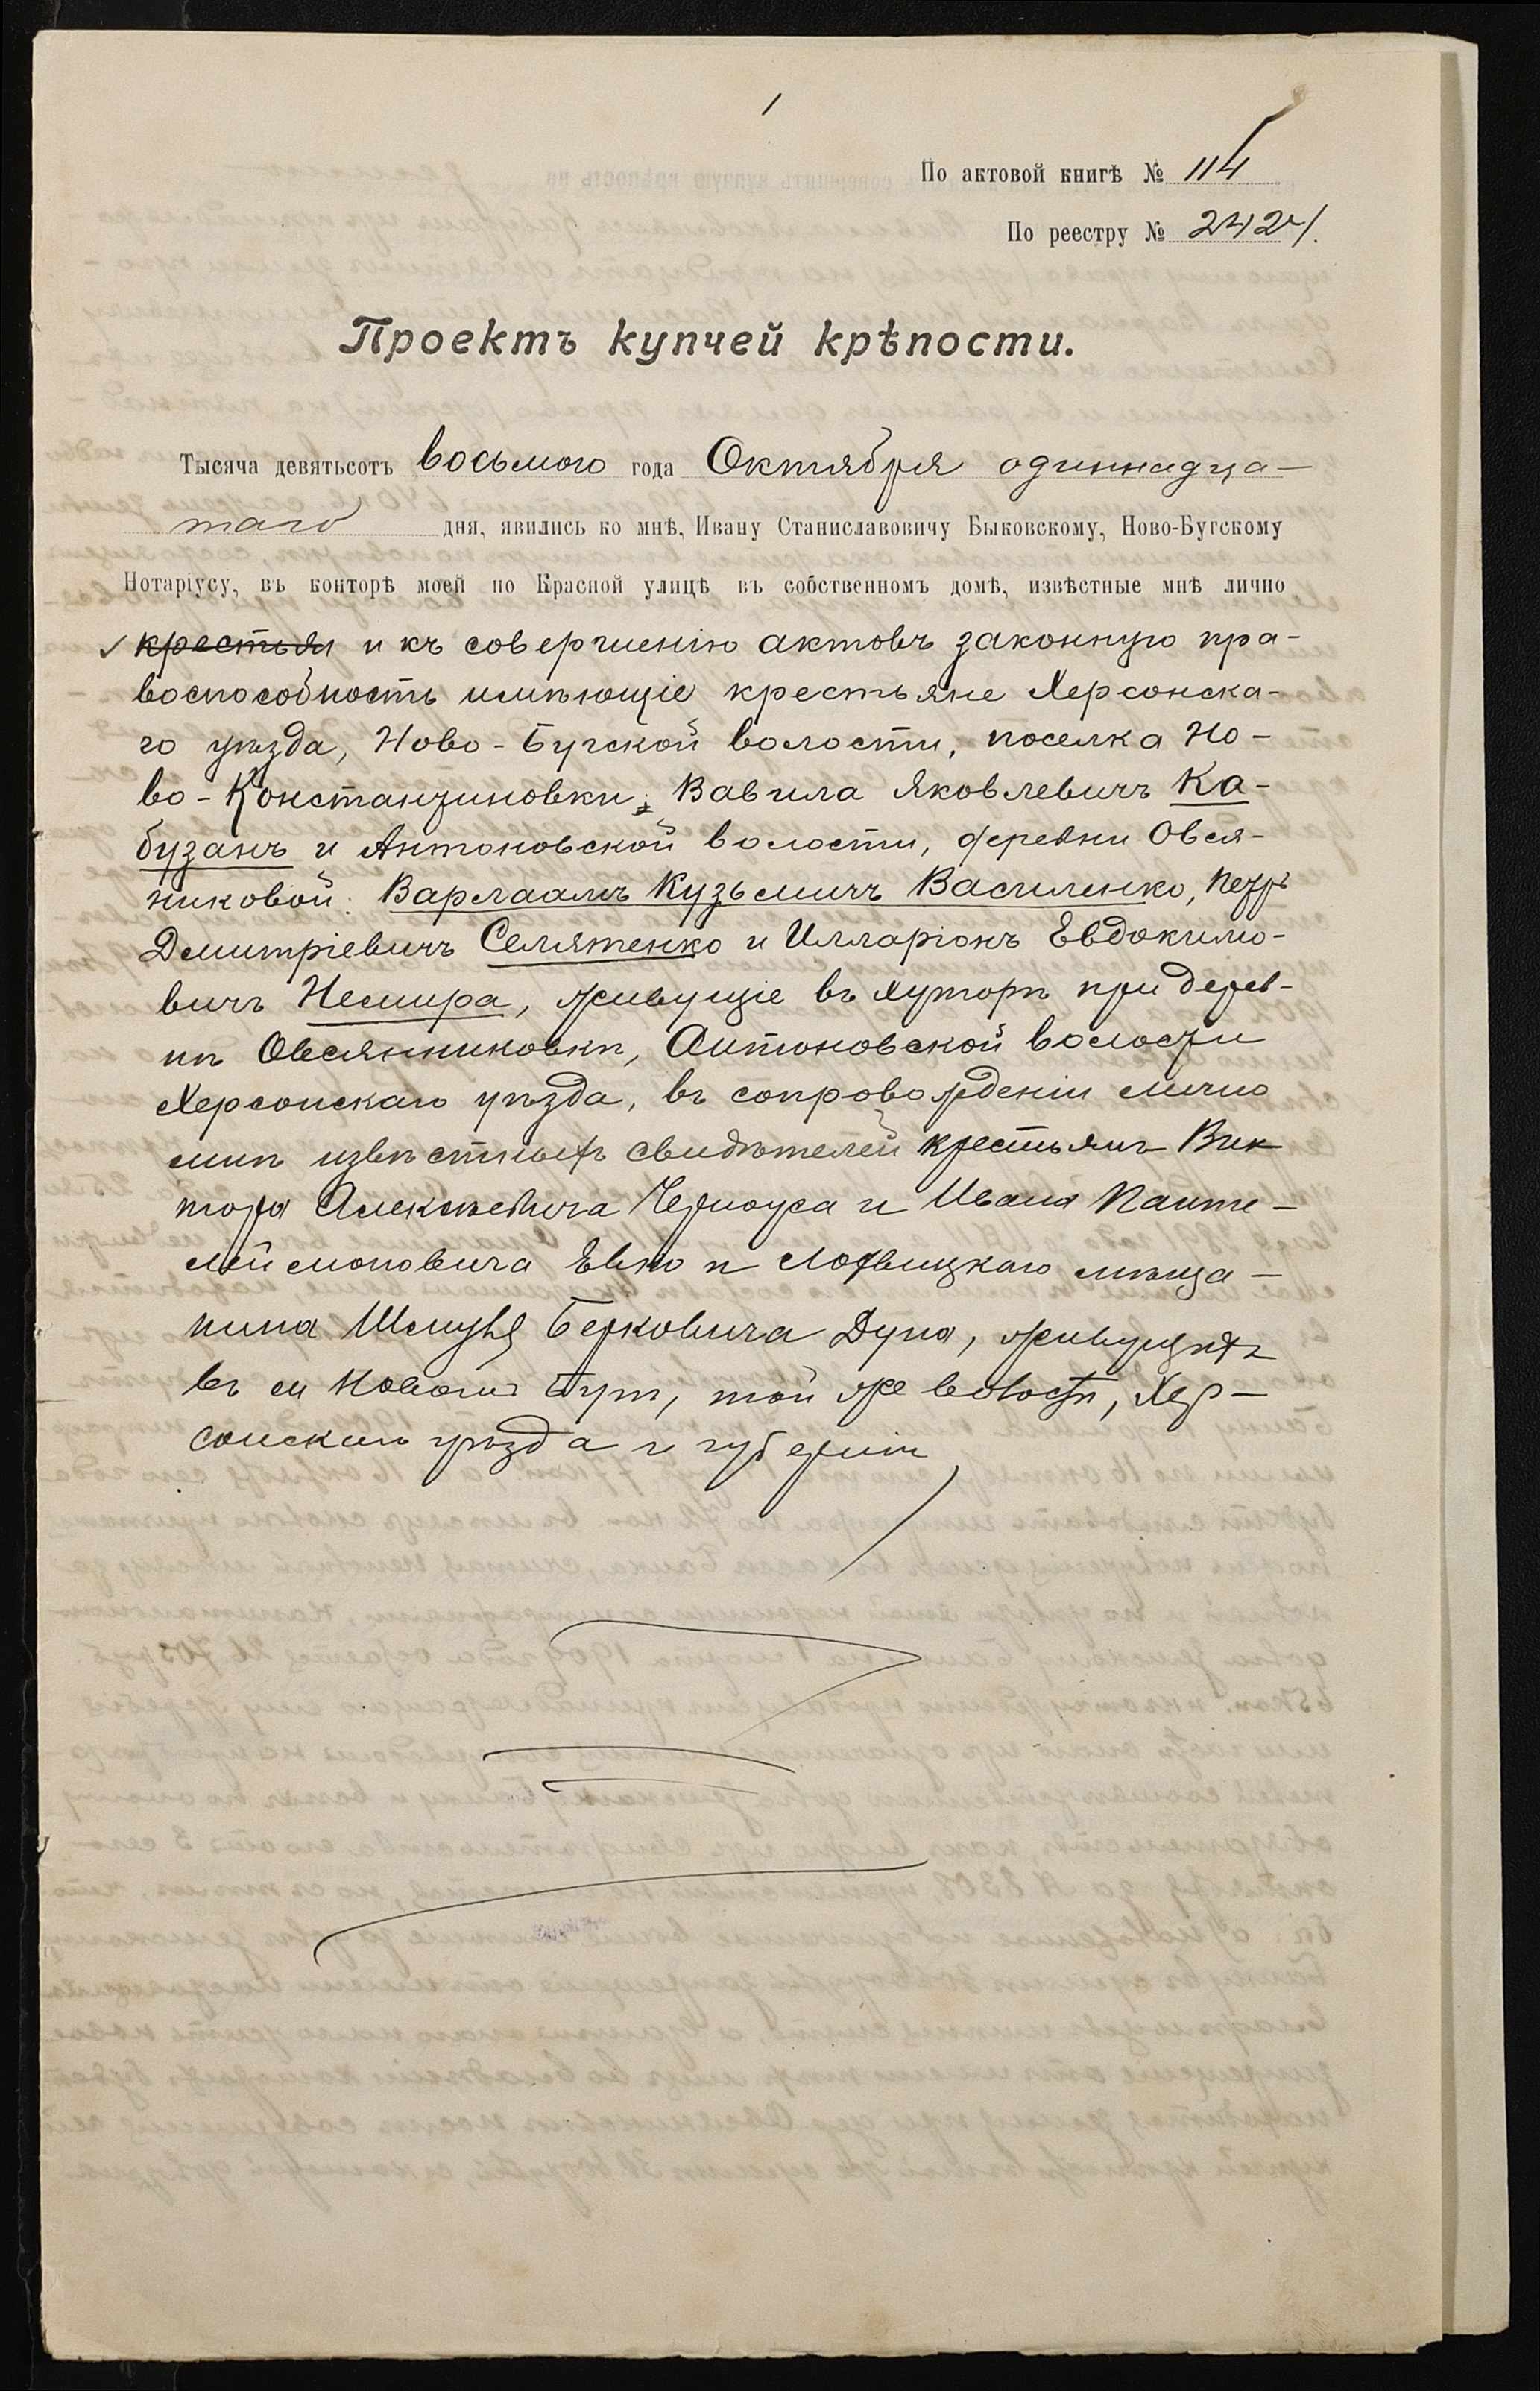 1
По актовой книгѣ № 114
По реестру № 2424.
Проектъ купчей крѣпости.
Тысяча девятьсотъ восьмого года Октября одиннадца-
таго дня, явились ко мнѣ, Ивану Станиславовичу Быковскому, Ново-Бугскому
Нотаріусу, въ конторѣ моей по Красной улицѣ въ собственномъ домѣ, извѣстные мнѣ лично
крестьян и къ совершенію актовъ законную пра-
воспособность имѣющіе крестьяне Херсонска-
го уѣзда, Ново-Бугской волости, поселка Но-
во-Константиновки, Вавила Яковлевичъ Ка-
бузанъ и Антоновской волости, деревни Овся-
никовой: Варлаамъ Кузьмичъ Василенко, Петръ
Дмитріевичъ Селятенко и Илларіонъ Евдокимо-
вичъ Немира, живущіе въ хуторѣ при дерев-
нѣ Овсянниковкѣ, Антоновской волости
Херсонскаго уѣзда, въ сопровожденіи лично
мнѣ извѣстныхъ свидѣтелей крестьянъ Вик
тора Алексѣевича Черноуса и Ивана Панте-
леймоновича и мѣща-
нина Шмуля Берковича Дуна, живущихъ
въ м Новомъ Бугѣ, той же волости, Хер-
сонскаго уѣзда и губерніи